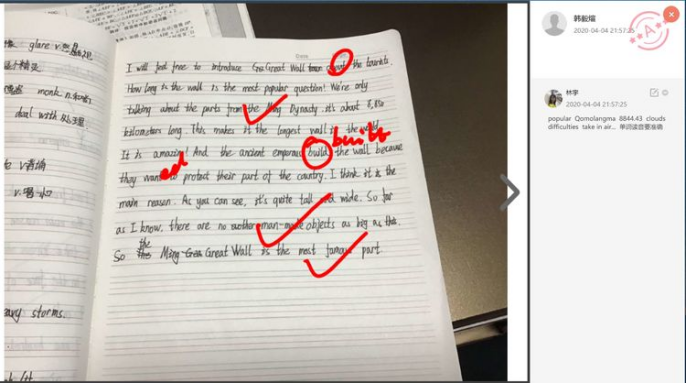 glare v.怒视
monk n.和尚
deal with 处理
v.
avy storms.
I will feel free to introduce Great Wall about the tourists.
How long is the wall is the most popular question! We're only
talking about the parts from the Ming Dynasty. it's about 8,850
kilometers long. This makes it the longest wall in the world.
It is amazing! And the ancient emperous build the wall because
built
they want to protect their part of the country. I think it is the
ed
main reason. As you can see, it's quite tall and wide. So far
as I know, there are no man-made objects as big as this.
the
So Ming Great Wall is the most famous part
韩毅煊
2020-04-04 21:57:25
A+
林李
2020-04-04 21:57:25
popular Qomolangma 8844.43 clouds
difficulties take in air... 单词读音要准确